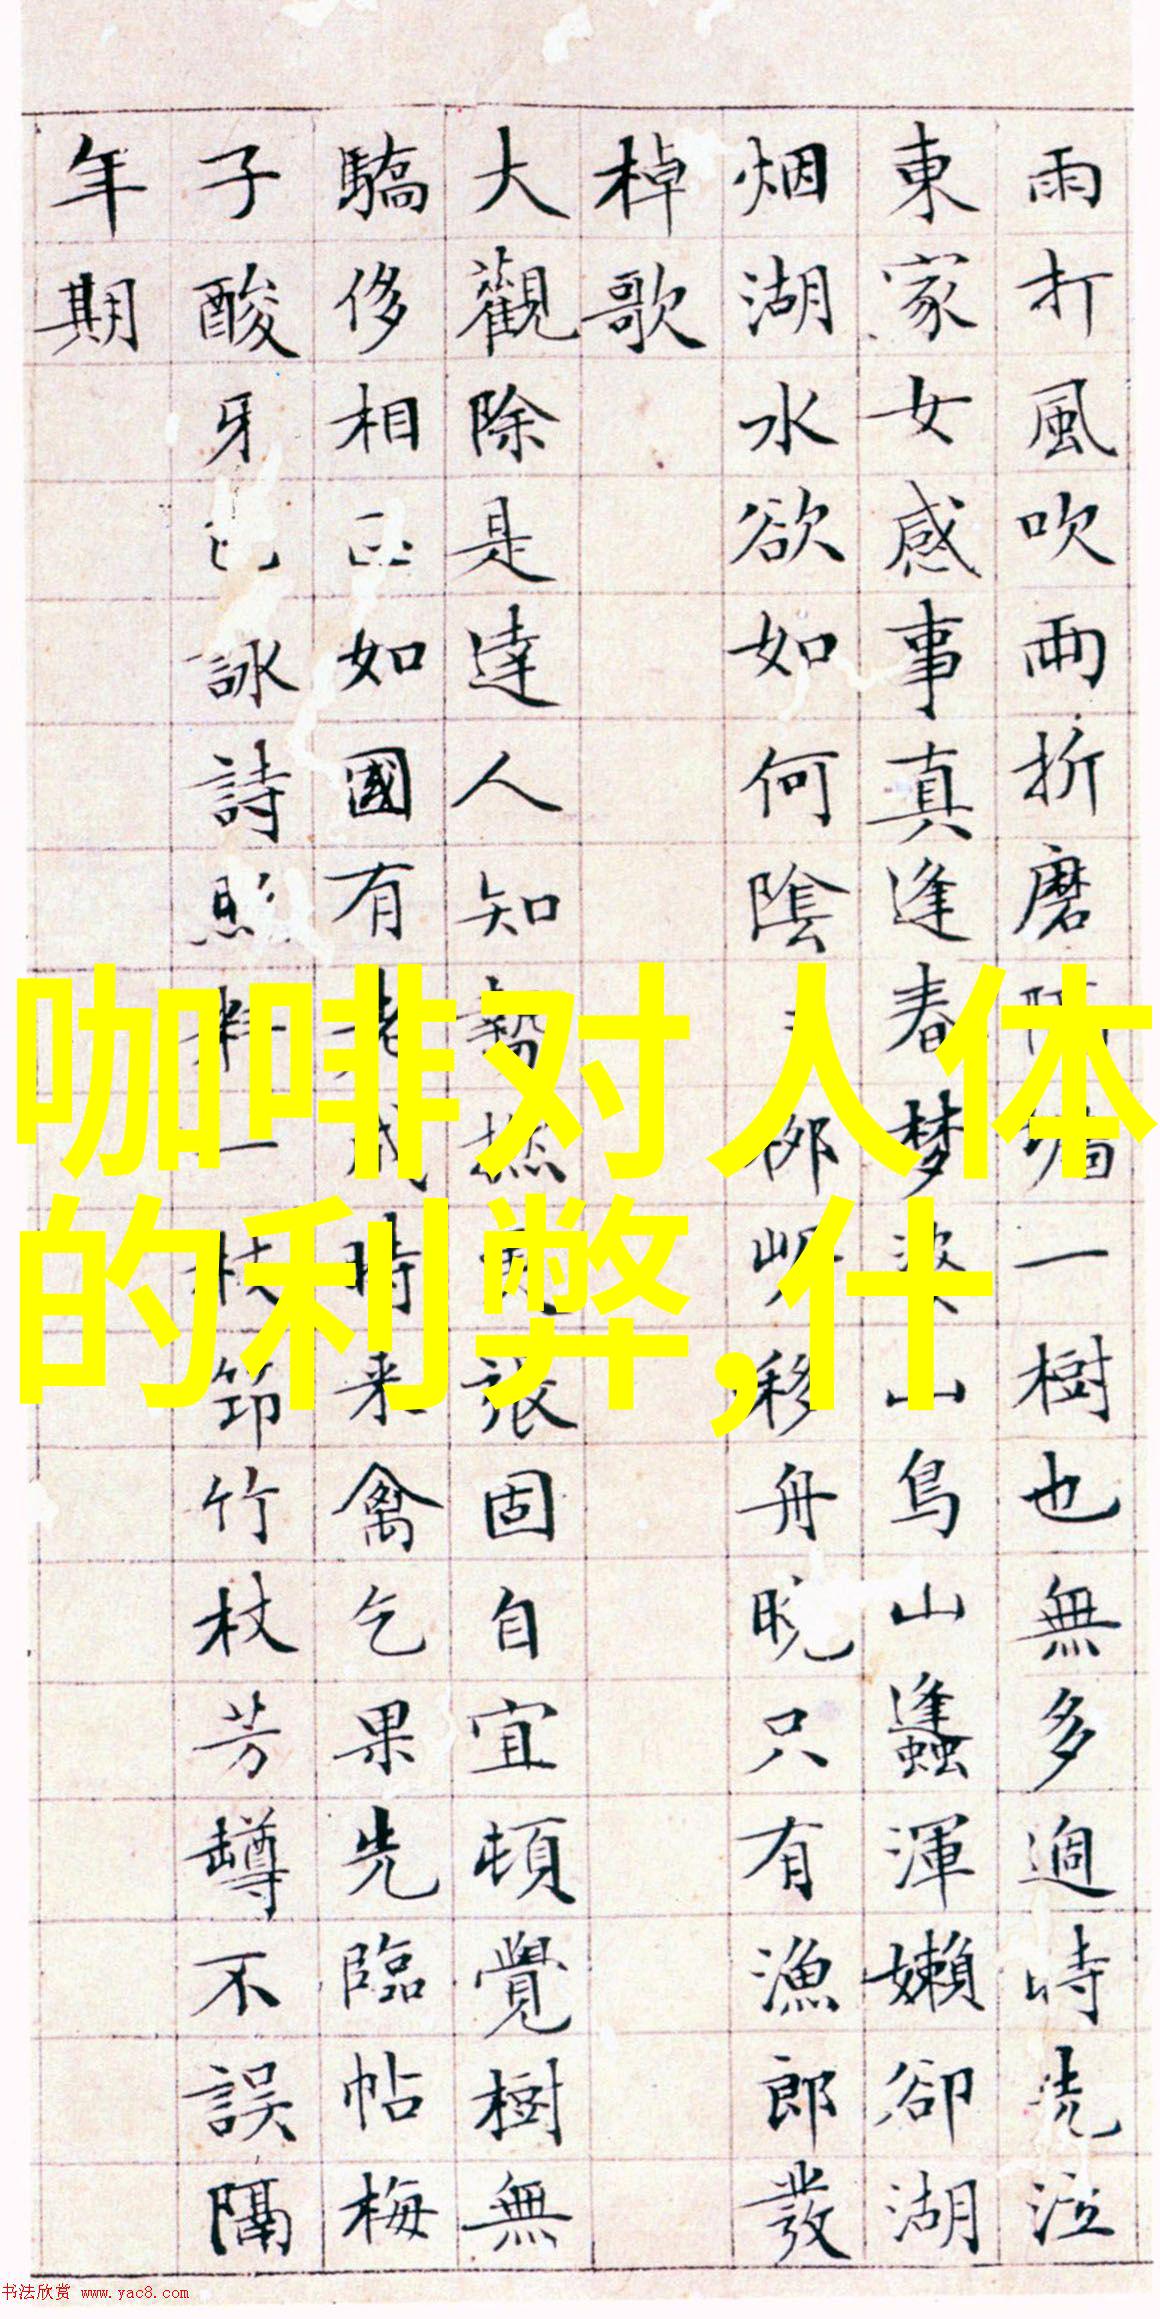 雨打風吹雨折磨
一樹也無多過時
東家女感事真逢春夢婆
山鳥山蠭渾嬾卻湖
烟湖水欲如何陰
柳
移舟晚只有漁郎發
棹歌
大觀除是達人知
張固自宜頓覺樹無
驕侈相如國有
時来禽乞果先臨帖梅
子酸牙詠詩
一枝筇竹杖芳罇不誤隔
年期
咖啡对人体
的利弊,什
书法欣赏 www.yac8.com